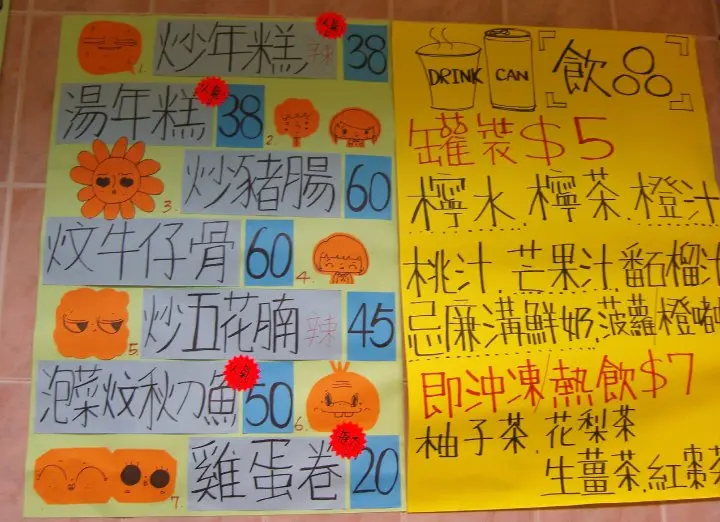 1. 炒年糕 辣 人氣 38
湯年糕 人氣 38 2.
3. 炒豬腸 60
炆牛仔骨 60 4.
5. 炒五花腩 辣 45
泡菜炆秋刀魚 人氣 50 6.
7. 雞蛋卷 20
DRINK CAN 飲
罐裝 $5
檸水. 檸茶. 橙汁
桃汁. 芒果汁. 番石榴汁
忌廉溝鮮奶. 菠蘿橙啫
即沖凍/熱飲 $7
柚子茶. 花梨茶
生薑茶. 紅棗茶